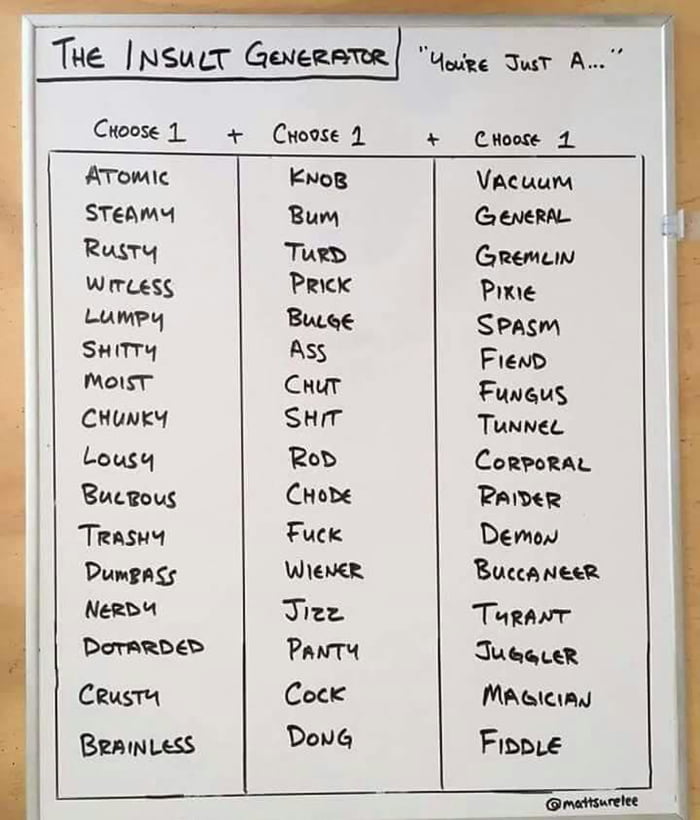 THE INSULT GENERATOR "YOU'RE JUST A..."
CHOOSE 1 + CHOOSE 1 + CHOOSE 1
ATOMIC KNOB VACUUM
STEAMY BUM GENERAL
RUSTY TURD GREMLIN
WITLESS PRICK PIXIE
LUMPY BULGE SPASM
SHITTY ASS FIEND
MOIST CHUT FUNGUS
CHUNKY SHIT TUNNEL
LOUSY ROD CORPORAL
BULBOUS CHODE RAIDER
TRASHY FUCK DEMON
DUMBASS WIENER BUCCANEER
NERDY JIZZ TYRANT
DOTARDED PANTY JUGGLER
CRUSTY COCK MAGICIAN
BRAINLESS DONG FIDDLE
@mattsurelee